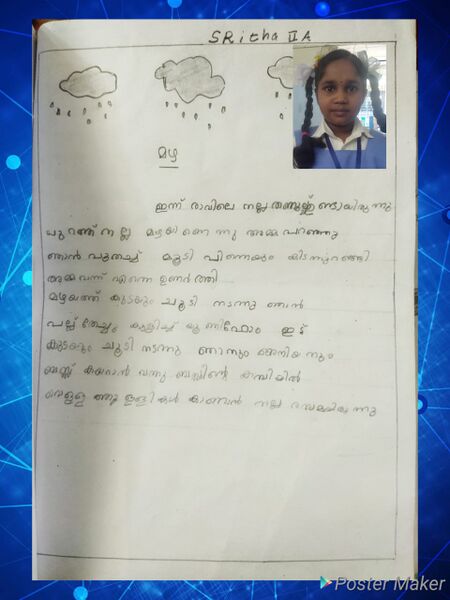 SRitha II A
മഴ
ഇന്ന് രാവിലെ നല്ല തണുപ്പുണ്ടായിരുന്നു
പുറത്ത് നല്ല മഴയാണെന്നു അമ്മ പറഞ്ഞു
ഞാൻ പുതച്ച് മൂടി പിന്നെയും കിടന്നുറങ്ങി
അമ്മ വന്ന് എന്നെ ഉണർത്തി
മഴയത്ത് കുടയും ചൂടി നടന്നു ഞാൻ
പല്ല് തേച്ചും കുളിച്ച് യൂണിഫോം ഇട്
കുടയും ചൂടി നടന്നു ഞാനും അനിയനും
ബസ്സ് കയറാൻ വന്നു ബസ്സിൻ്റെ കമ്പിയിൽ
വെള്ള ത്തുള്ളികൾ കാണാൻ നല്ല രസമായിരുന്നു
Poster Maker